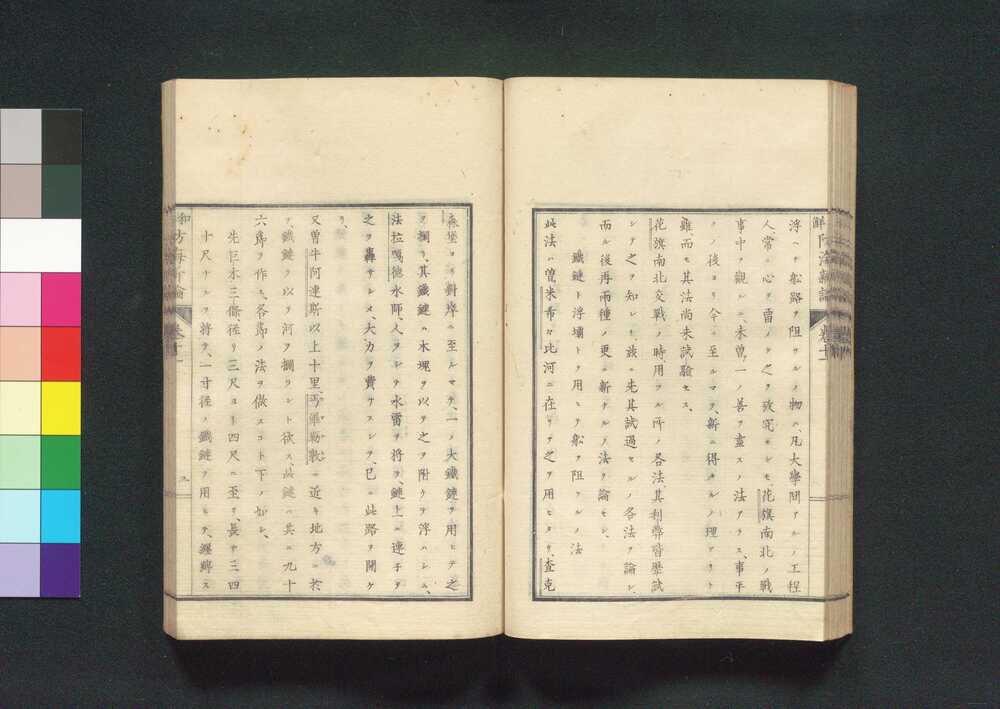 浮ヘテ船路ヲ阻ツルノ物ハ、凡大學問アルノ工程
人、常ニ心ヲ留ノテ之ヲ攷究セシモ、花旗南北ノ戰
事中ヲ觀ルニ、未曽一ノ善ヲ盡スノ法アラス、事平
ノ後ヨリ今ニ至ルマテ、新ニ得タルノ理アリト
雖而モ其法尚未試驗セス、
花旗南北交戰ノ時、用フル所ノ各法、其利弊皆歴試
シテ之ヲ知レリ、玆ニ先其試過セルノ各法ヲ論シ、
而ル後再兩種ノ更ニ新ナルノ法ヲ論セン、
鐵鏈ト浮壩トヲ用ヒテ船ヲ阻ツルノ法
此法ハ曽、米希々比河ニ在リテ之ヲ用ヒタリ、査克
森堡ヨリ對岸ニ至ルマテ、一ノ大鐵鏈ヲ用ヒテ之
ヲ攔リ、其鐵鏈ハ木塊ヲ以テ之ヲ附ケテ浮ハシム、
法拉嘎德水師、人ヲシテ水雷ヲ將テ、鏈上ニ連子テ
之ヲ轟サシメ、大力ヲ費サスシテ、已ニ此路ヲ開ケ
リ、
又曽牛阿連斯以上十里、丐羅勒敦ニ近キ地方ニ於
テ鐵鏈ヲ以テ河ヲ攔ラント欲ス此鏈ハ共ニ九十
六節ヲ作ル、各節ノ法ヲ做スコト下ノ如シ、
先巨木三條、徑リ三尺ヨリ四尺ニ至リ、長サ三四
十尺ナルヲ將テ、一寸徑ノ鐵鏈ヲ用ヒテ、纒縛ス
卷十一